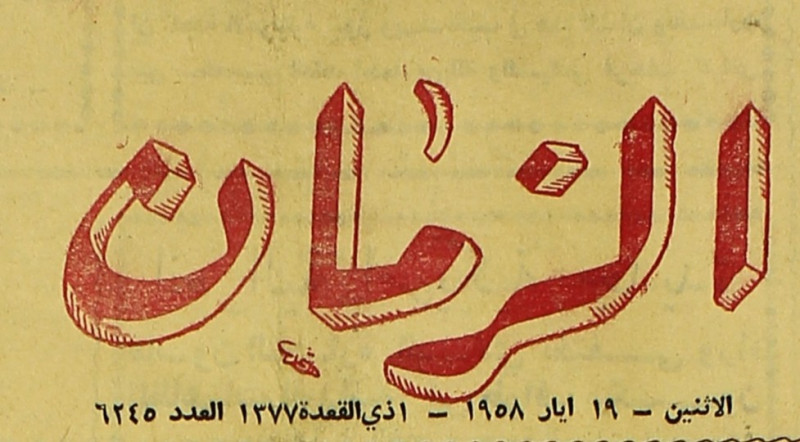 الزمان
الاثنين – ١٩ ايار ١٩٥٨ – ١ ذي القعدة ١٣٧٧ العدد ٦٢٤٥